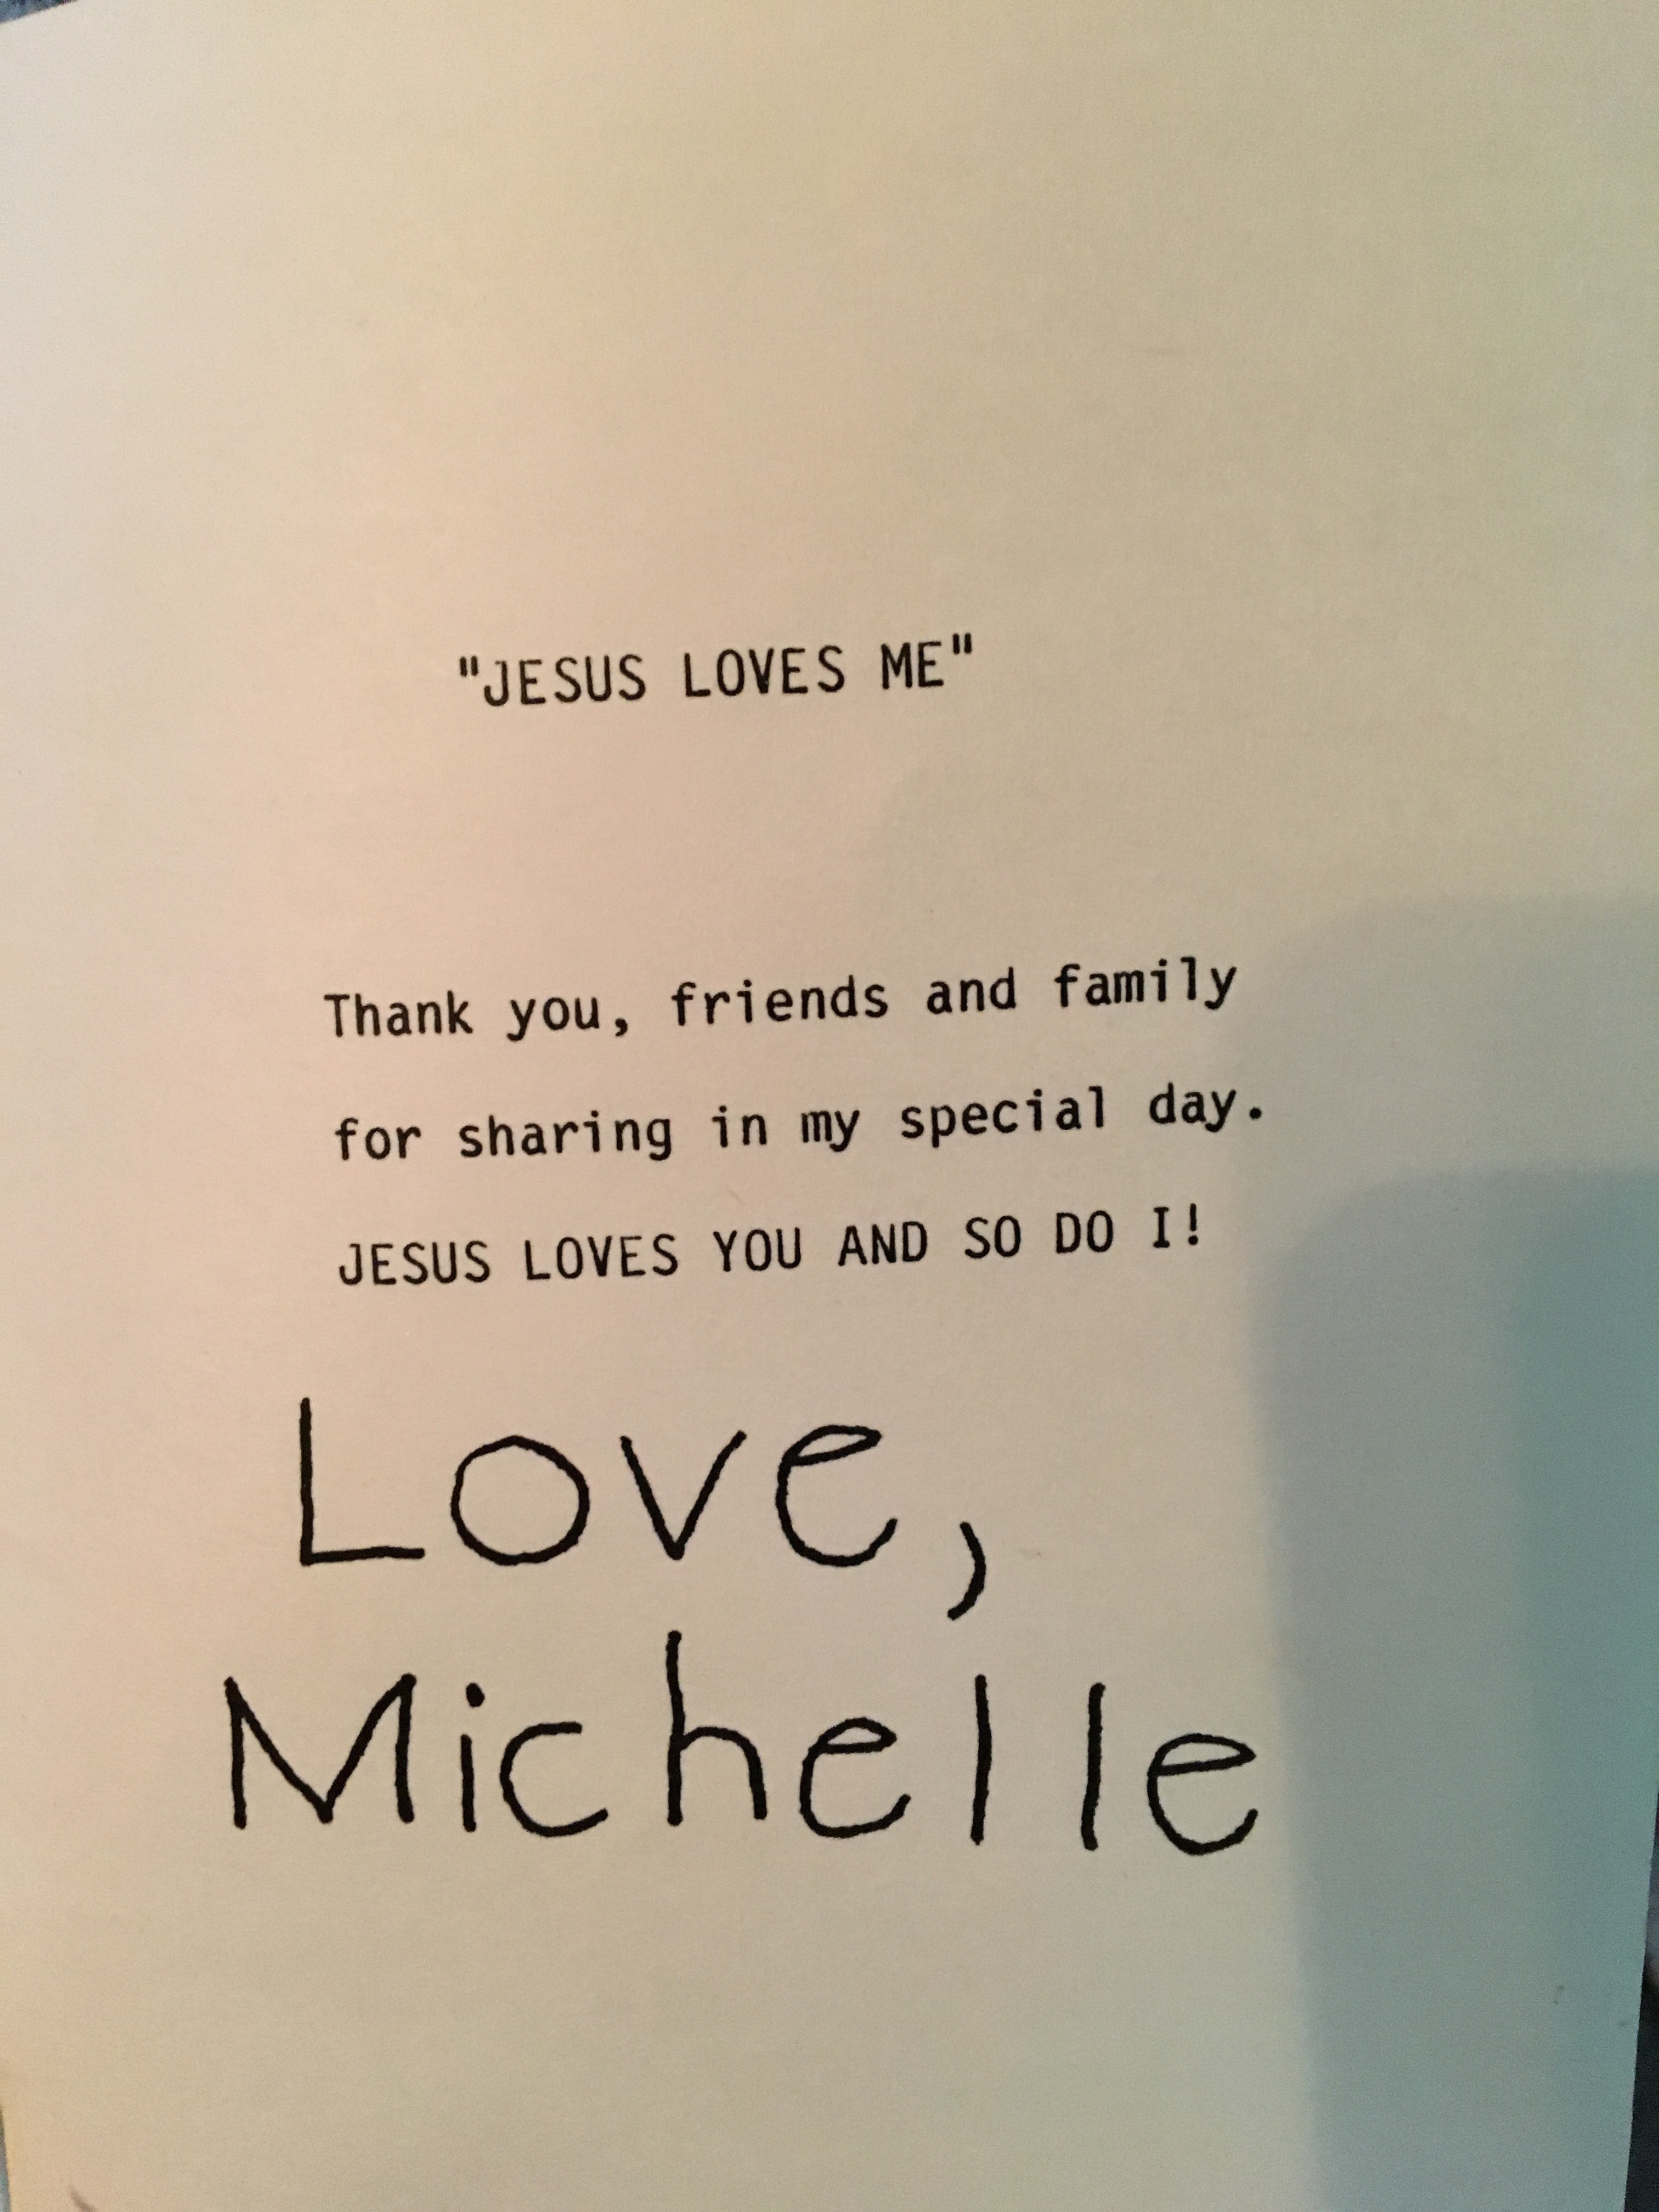 "JESUS LOVES ME"
Thank you, friends and family
for sharing in my special day.
JESUS LOVES YOU AND SO DO I!
Love,
Michelle